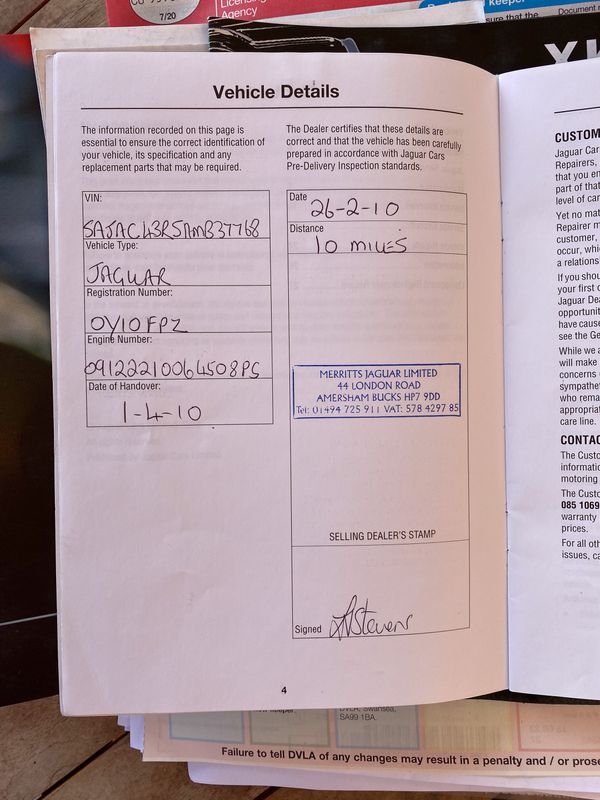 7/20
Licensing
Agency
keeper
sure that the
Document
Vehicle Details
The information recorded on this page is
essential to ensure the correct identification of
your vehicle, its specification and any
replacement parts that may be required.
The Dealer certifies that these details are
correct and that the vehicle has been carefully
prepared in accordance with Jaguar Cars
Pre-Delivery Inspection standards.
VIN:
Vehicle Type:
JAGUAR
Registration Number:
OY10FPZ
Engine Number:
Date of Handover:
1-4-10
Date
26-2-10
Distance
10 MILES
MERRITTS JAGUAR LIMITED
44 LONDON ROAD
AMERSHAM BUCKS HP7 9DD
Tel: 01494 725 911 VAT: 578 4297 85
SELLING DEALER'S STAMP
Signed
4
CUSTOM
Jaguar Car
Repairers,
that you en
part of that
level of car
Yet no mat
Repairer m
customer,
occur, whi
a relations
If you shou
your first c
Jaguar Dea
opportunit
have cause
see the Ge
While we a
will make
concerns
sympathe
who rema
appropriat
care line.
CONTAC
The Custo
informatio
motoring
The Custo
085 1069
warranty
prices.
For all oth
issues, ca
DVLA, Swansea,
SA99 1BA.
Failure to tell DVLA of any changes may result in a penalty and / or prose